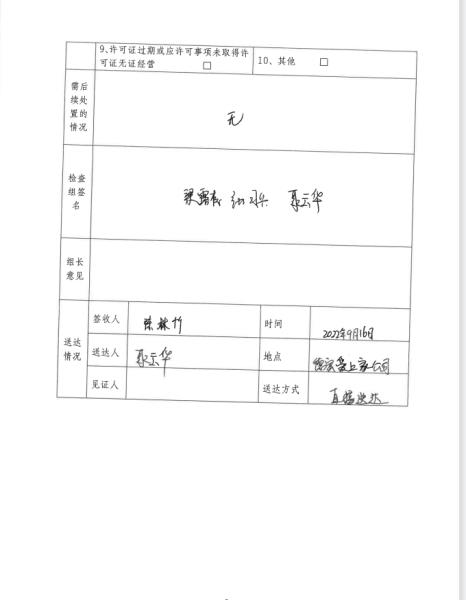 9、许可证过期或应许可事项未取得许
可证无证经营 □
10、其他 □
需后
续处
置的
情况
无
检查
组签
名
聂云华
组长
意见
送达
情况
签收人
时间
2022年9月16日
送达人
聂云华
地点
公司
见证人
送达方式
直接送达